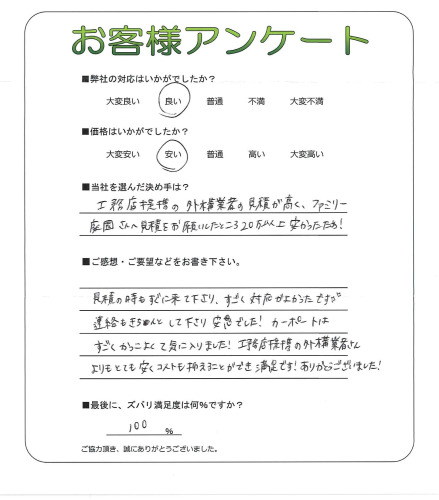 お客様アンケート
■弊社の対応はいかがでしたか？
大変良い 良い 普通 不満 大変不満
■価格はいかがでしたか？
大変安い 安い 普通 高い 大変高い
■当社を選んだ決め手は？
工務店提携の外構業者の見積が高く、ファミリー
庭園さんへ見積をお願いしたところ20万以上安かったため！
■ご感想・ご要望などをお書き下さい。
見積の時もすぐに来て下さり、すごく対応がよかったですが
連絡もきちんとして下さり安心でした！カーポートは
すごくかっこよくて気に入りました！工務店提携の外構業者さん
よりもとても安くコストも抑えることができ満足です！ありがとうございました！
■最後に、ズバリ満足度は何%ですか？
100 %
ご協力頂き、誠にありがとうございました。